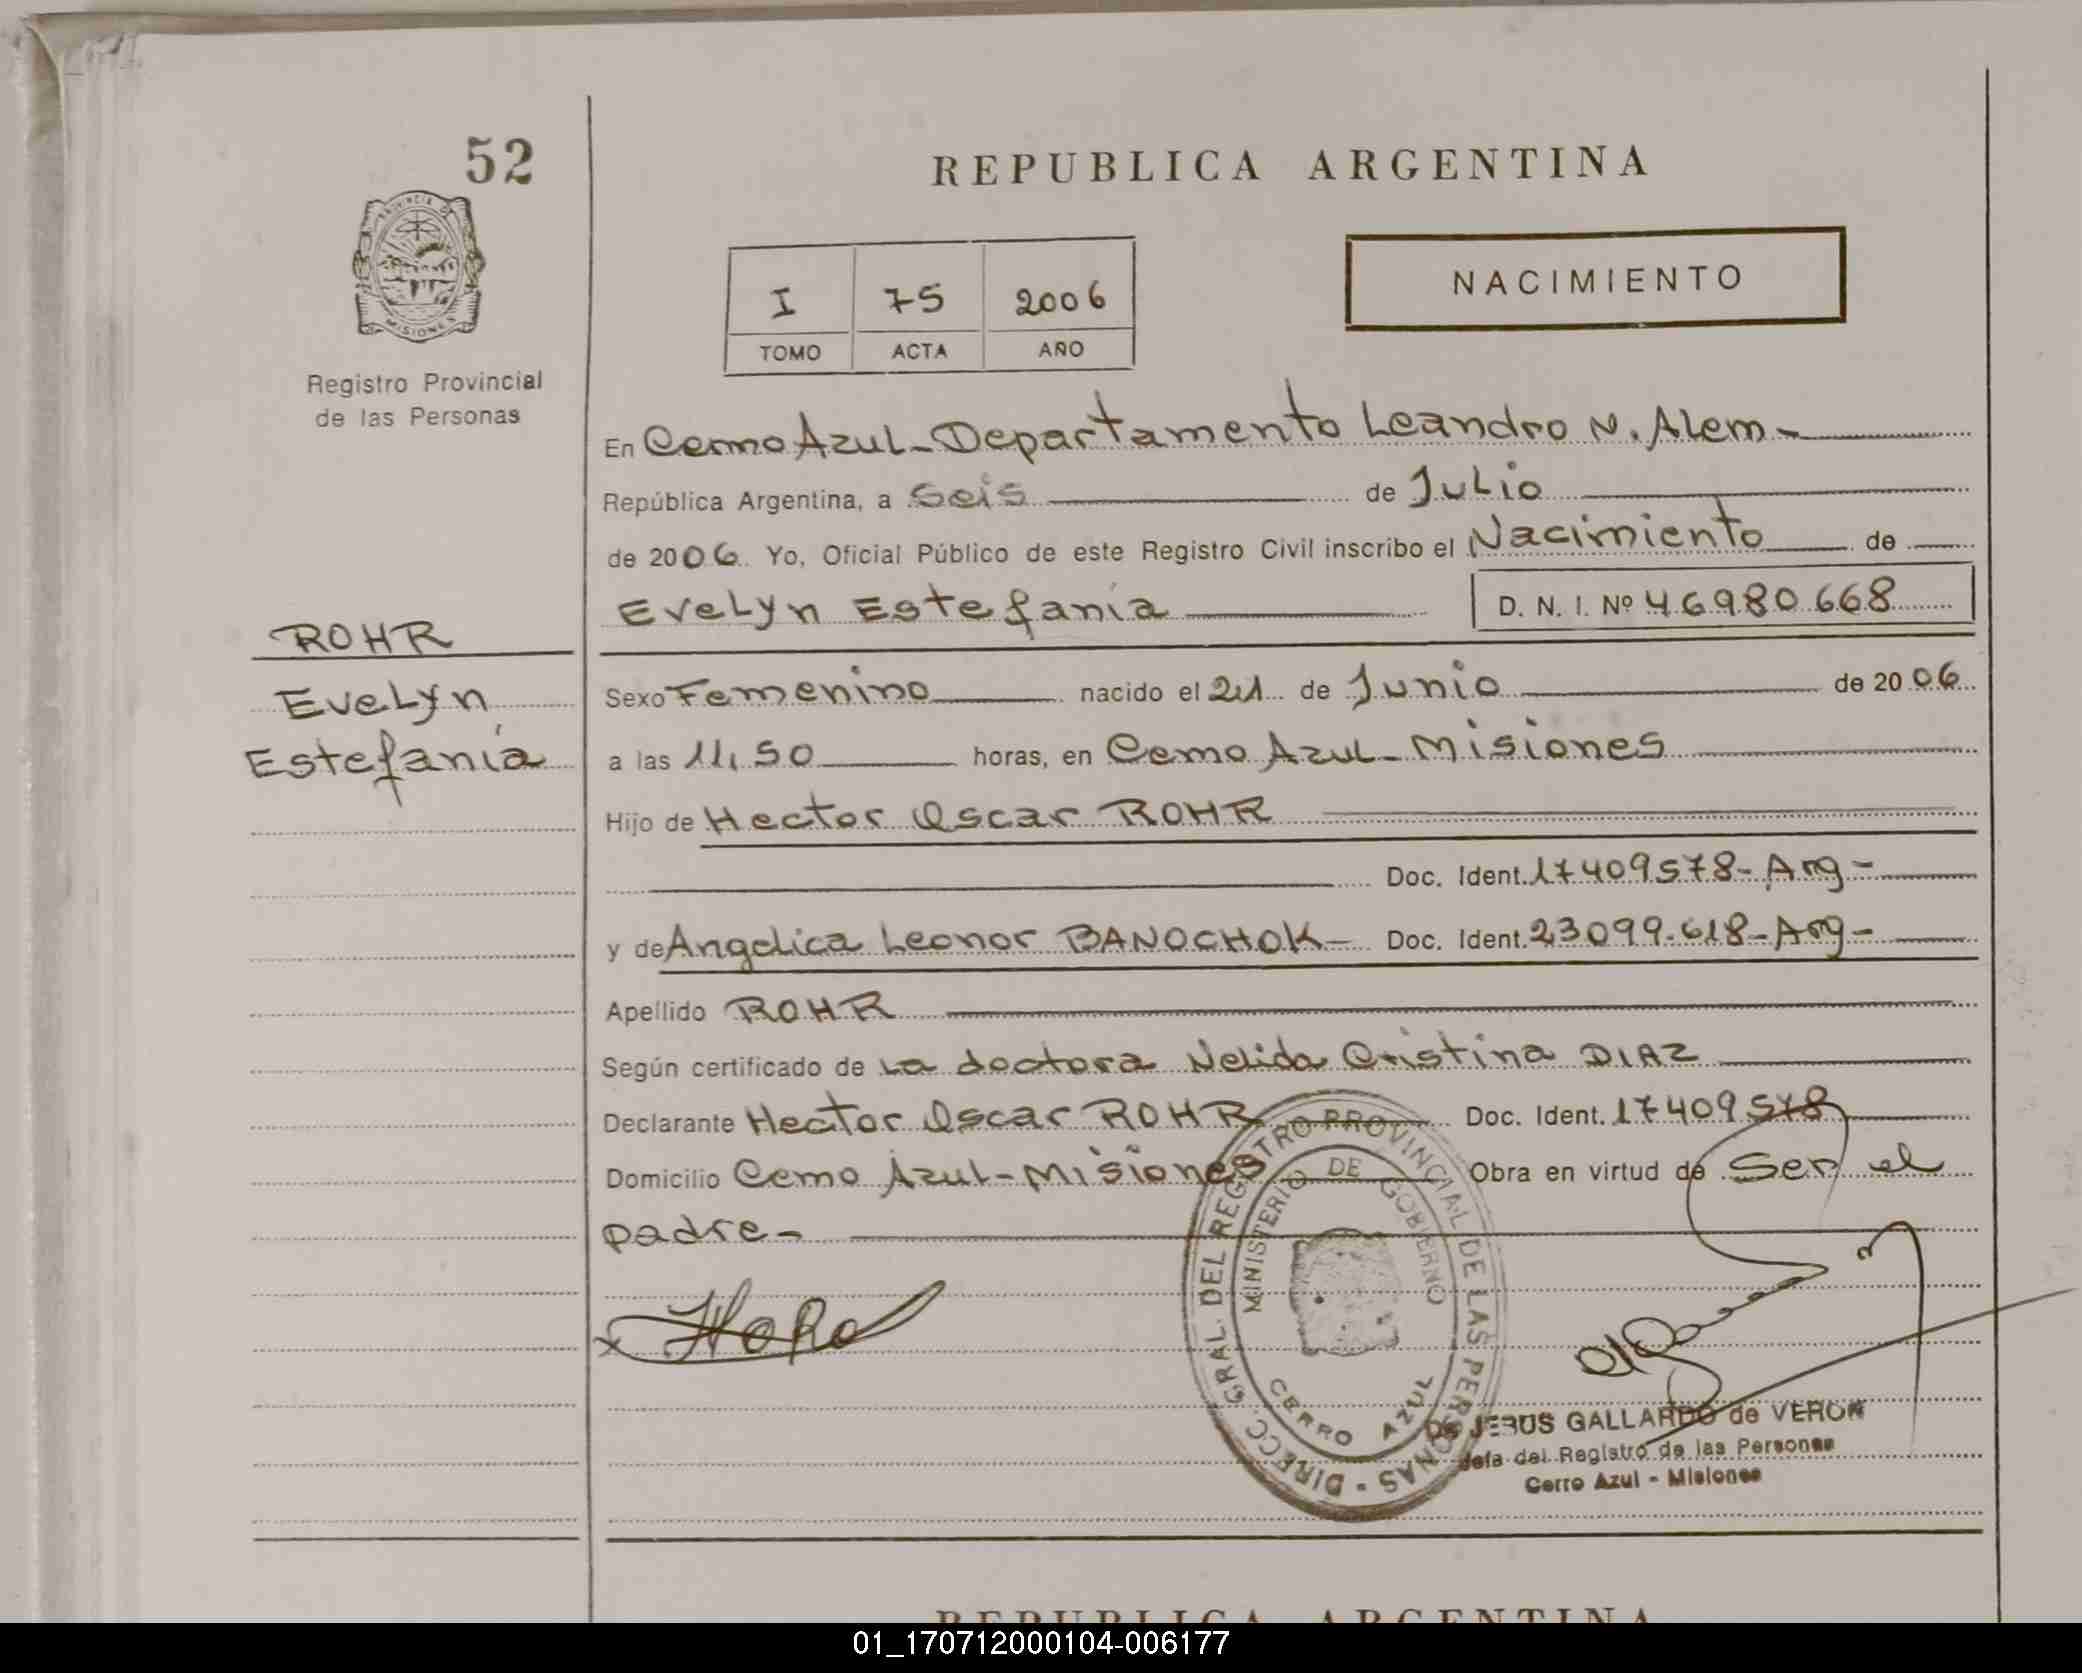 52
PROVINCIA DE
MISIONES
Registro Provincial
de las Personas
ROHR
Evelyn
Estefanía
REPUBLICA ARGENTINA
I 75 2006
TOMO ACTA AÑO
NACIMIENTO
En Cerro Azul - Departamento Leandro N. Alem -
República Argentina, a Seis de Julio
de 2006 Yo, Oficial Público de este Registro Civil inscribo el Nacimiento de
Evelyn Estefanía D. N. I. Nº 46980668
Sexo Femenino nacido el 21 de Junio de 2006
a las 11,50 horas, en Cerro Azul - Misiones
Hijo de Hector Oscar ROHR
Doc. Ident. 17409578 - Arg -
y de Angelica Leonor BANOCHOK - Doc. Ident. 23099.618 - Arg -
Apellido ROHR
Según certificado de la doctora Nelida Cristina DIAZ
Declarante Hector Oscar ROHR Doc. Ident. 17409578
Domicilio Cerro Azul - Misiones Obra en virtud de Ser el
padre -
DIRECC. GRAL. DEL REGISTRO PROVINCIAL DE LAS PERSONAS -
MINISTERIO DE GOBIERNO
CERRO AZUL
De JESUS GALLARDO de VERON
Jefa del Registro de las Personas
Cerro Azul - Misiones
REPUBLICA ARGENTINA
01_170712000104-006177